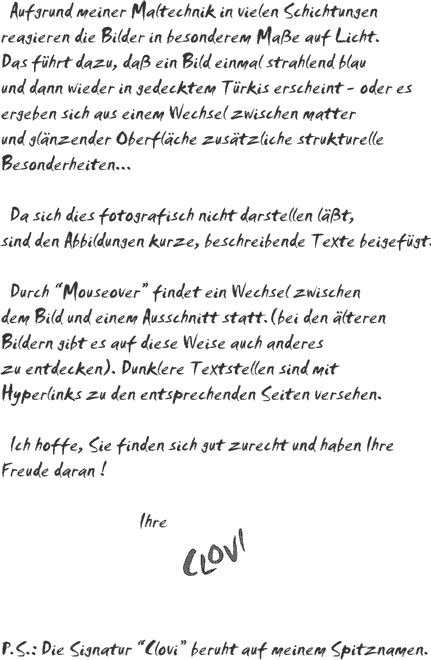 Aufgrund meiner Maltechnik in vielen Schichtungen
reagieren die Bilder in besonderem Maße auf Licht.
Das führt dazu, daß ein Bild einmal strahlend blau
und dann wieder in gedecktem Türkis erscheint - oder es
ergeben sich aus einem Wechsel zwischen matter
und glänzender Oberfläche zusätzliche strukturelle
Besonderheiten...
Da sich dies fotografisch nicht darstellen läßt,
sind den Abbildungen kurze, beschreibende Texte beigefügt.
Durch "Mouseover" findet ein Wechsel zwischen
dem Bild und einem Ausschnitt statt.(bei den älteren
Bildern gibt es auf diese Weise auch anderes
zu entdecken). Dunklere Textstellen sind mit
Hyperlinks zu den entsprechenden Seiten versehen.
Ich hoffe, Sie finden sich gut zurecht und haben Ihre
Freude daran !
Ihre
CLOVI
P.S.: Die Signatur "Clovi" beruht auf meinem Spitznamen.